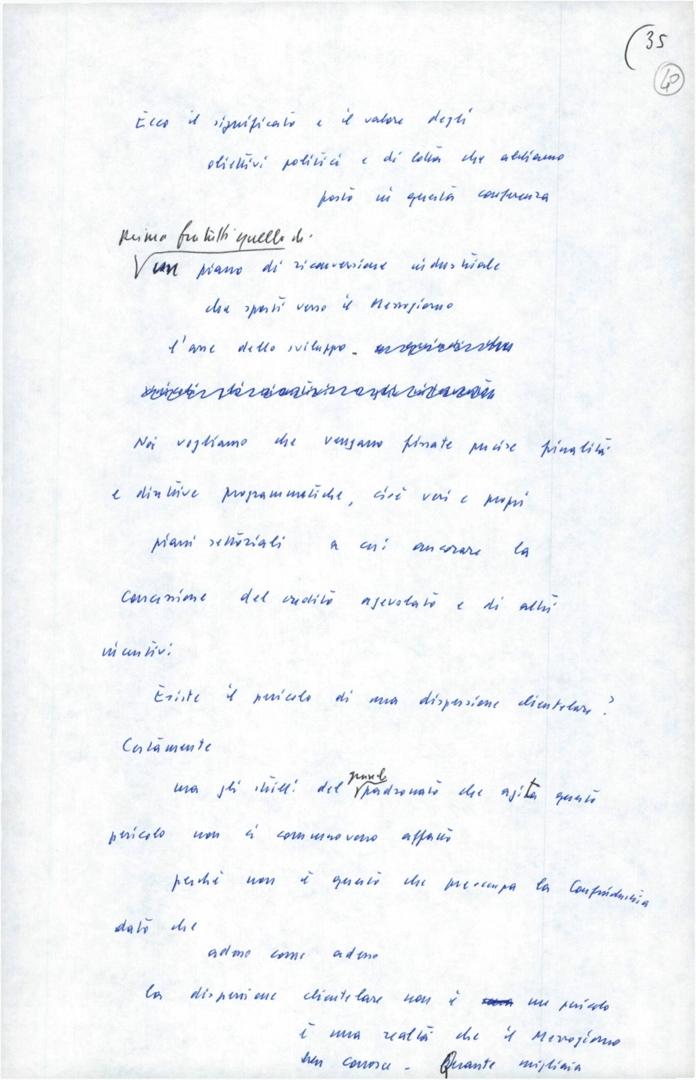 (35
40
Ecco il significato e il valore degli
obiettivi politici e di lotta che abbiamo
posto in questa conferenza
Primo fra tutti quello di
un piano di riconversione industriale
che sposti verso il Mezzogiorno
l'asse dello sviluppo.
Noi vogliamo che vengano fissate precise finalità
e direttive programmatiche, cioè veri e propri
piani settoriali a cui ancorare la
concessione del credito agevolato e di altri
incentivi
Esiste il pericolo di una dispersione clientelare?
Certamente
ma gli strilli del grande padronato che agita questo
pericolo non ci commuovono affatto
perché non è questo che preoccupa la Confindustria
dato che
adesso come adesso
la dispersione clientelare non è un pericolo
è una realtà che il Mezzogiorno
ben conosce. Quante migliaia